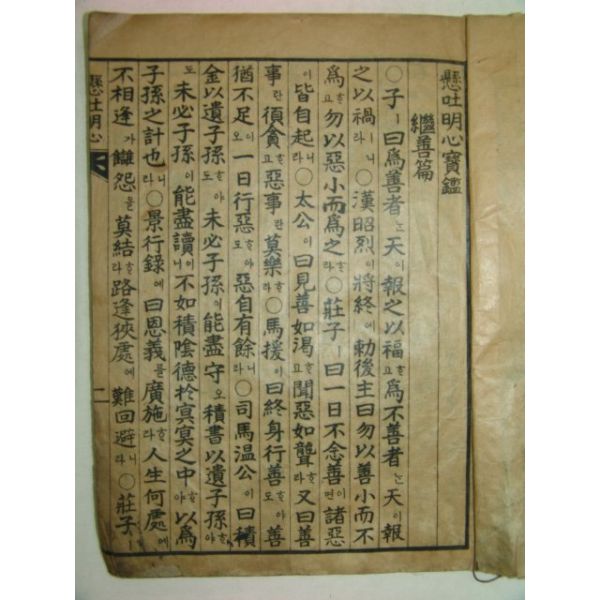 懸吐明心寶鑑
繼善篇
○子ㅣ曰爲善者는天이報之以福하고爲不善者는天이報
之以禍ㅣ니라○漢昭烈이將終에勅後主曰勿以善小而不
爲하고勿以惡小而爲之하라○莊子ㅣ曰一日不念善이면諸惡
이皆自起니라○太公이曰見善如渴하고聞惡如聾하라又曰善
事란須貪하고惡事란莫樂하라○馬援이曰終身行善하야도善
猶不足이오一日行惡하야도惡自有餘니라○司馬温公이曰積
金以遺子孫하야도未必子孫이能盡守오積書以遺子孫하야
도未必子孫이能盡讀이니不如積陰德於冥冥之中하야以爲
子孫之計也니라○景行錄에曰恩義를廣施하라人生何處에
不相逢가讎怨을莫結하라路逢狹處에難回避니라○莊子ㅣ
懸吐明心 二